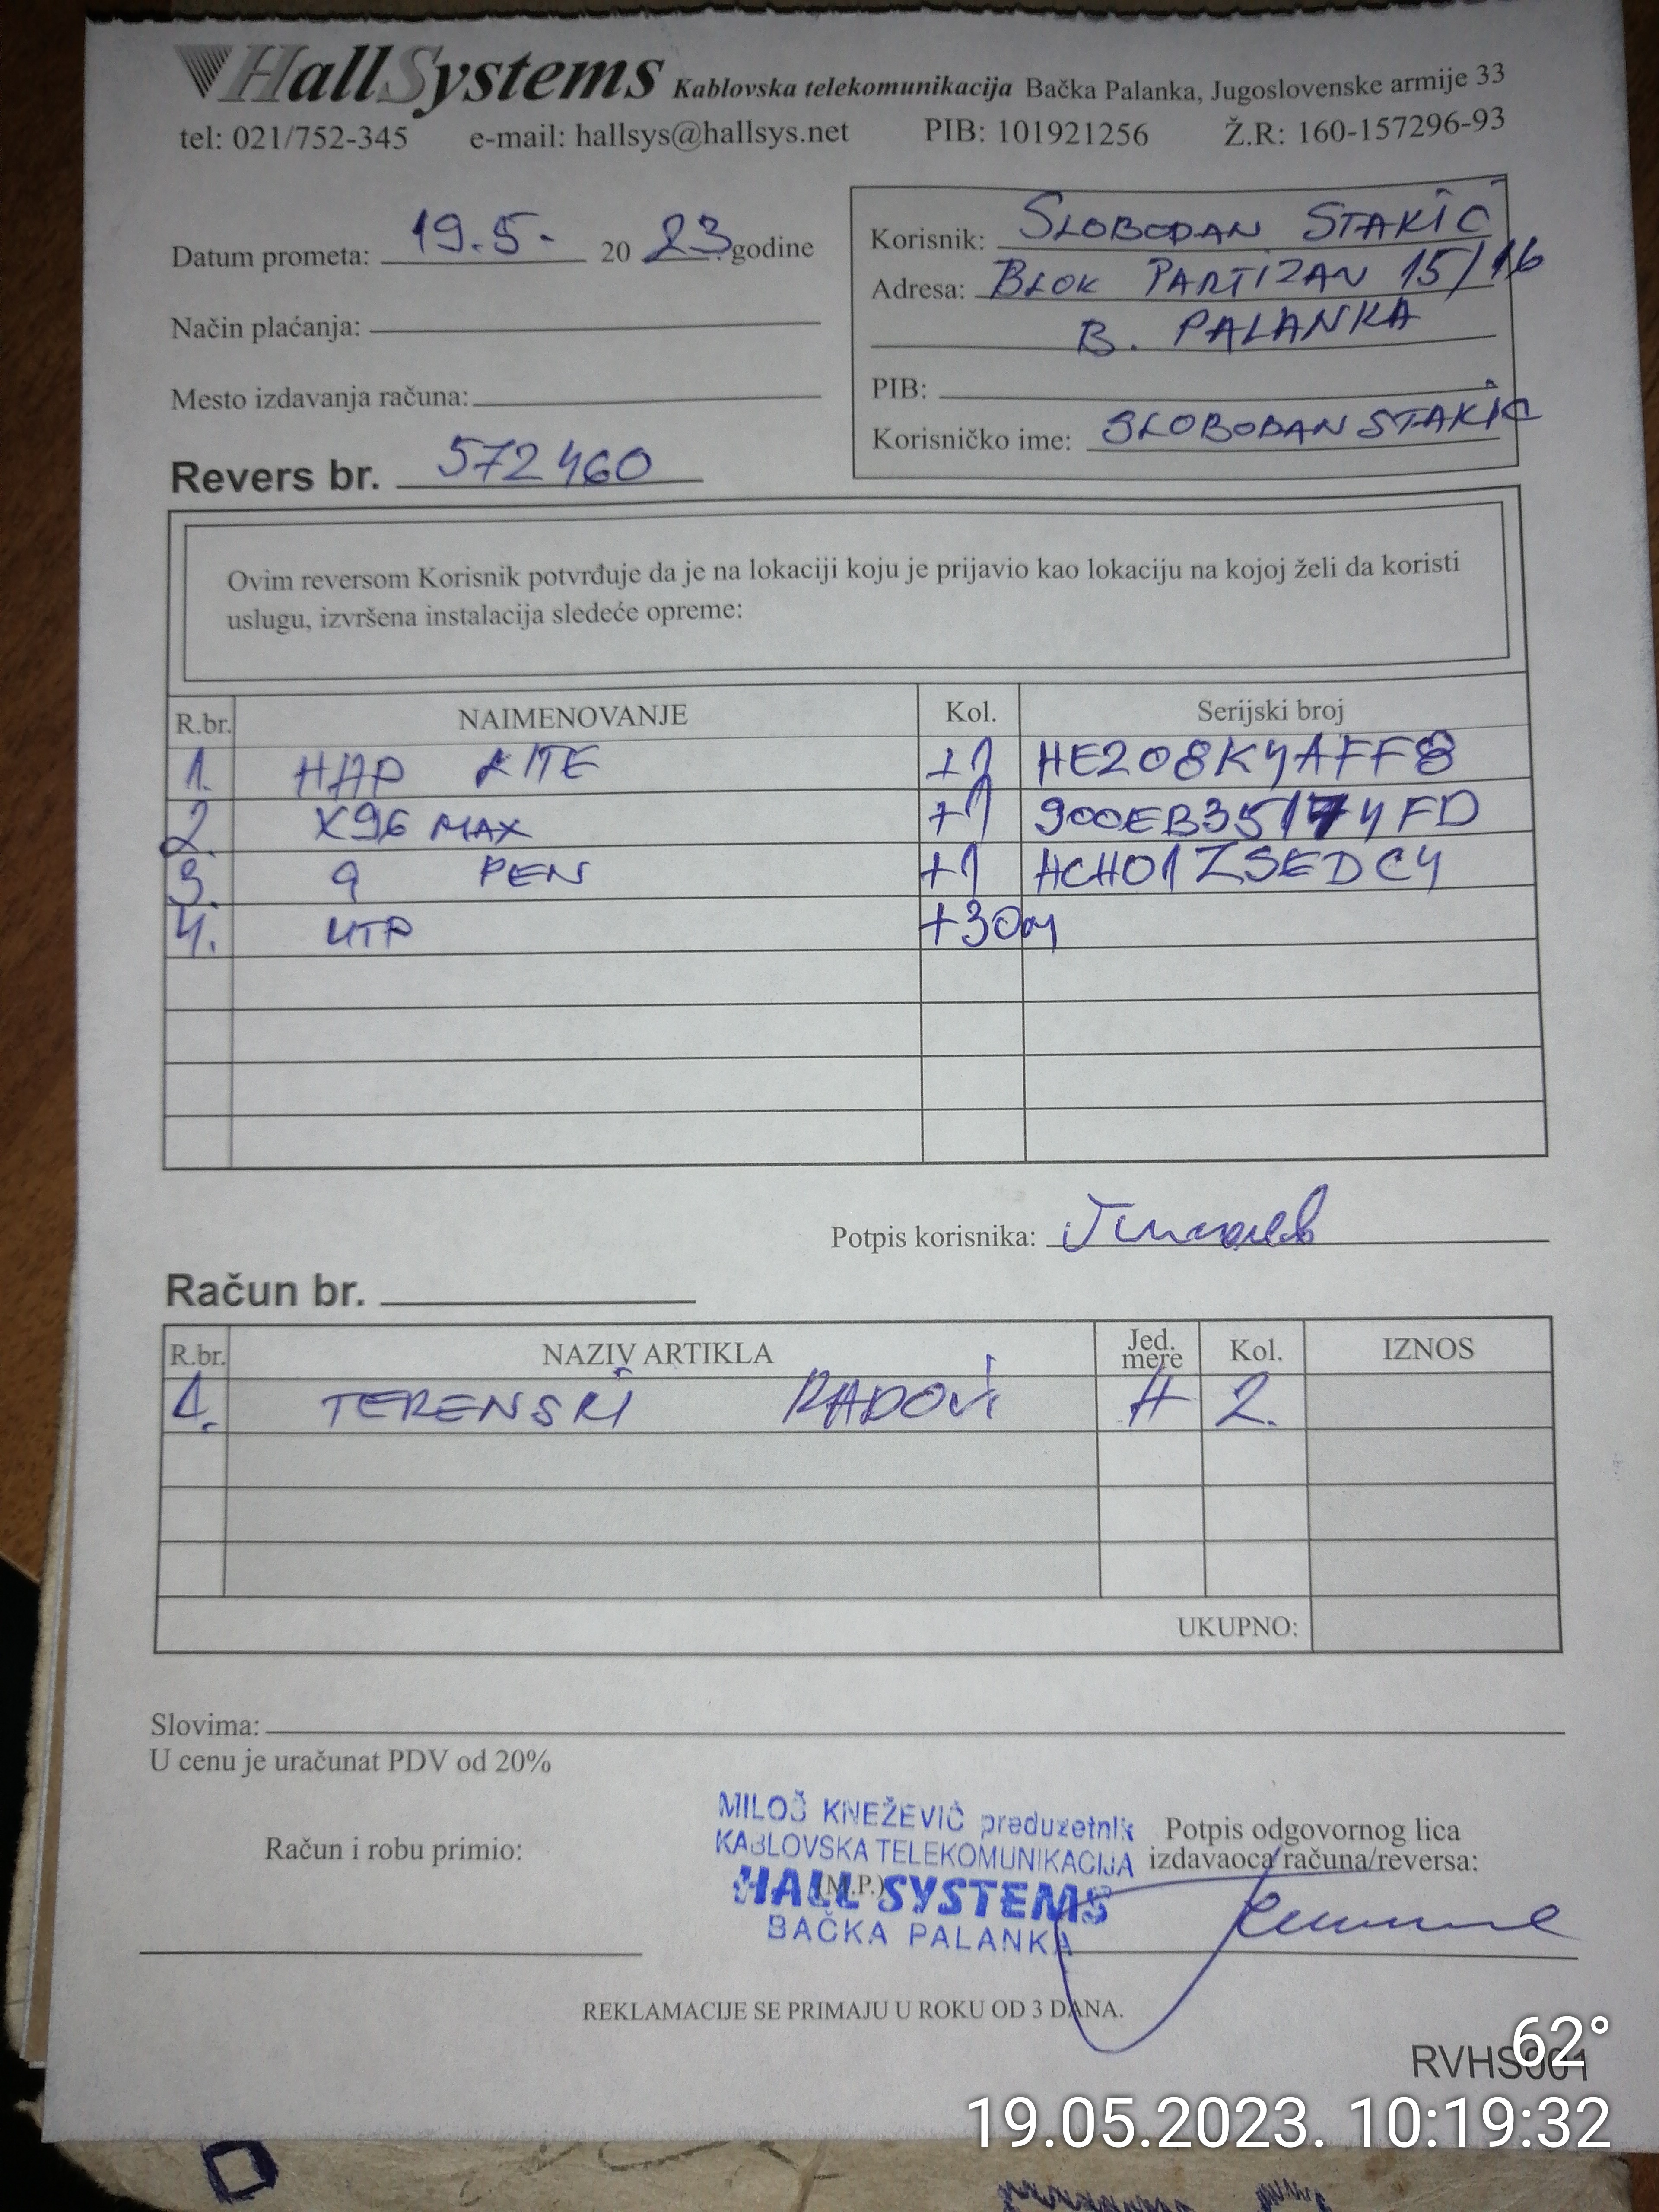 HallSystems Kablovska telekomunikacija Bačka Palanka, Jugoslovenske armije 33
tel: 021/752-345 e-mail: hallsys@hallsys.net PIB: 101921256 Ž.R: 160-157296-93
Datum prometa: 19.5. 20 23 godine
Način plaćanja:
Mesto izdavanja računa:
Revers br. 572460
Korisnik: SLOBODAN STAKIĆ
Adresa: BLOK PARTIZAN 15/16
B. PALANKA
PIB:
Korisničko ime: SLOBODAN STAKIĆ
Ovim reversom Korisnik potvrđuje da je na lokaciji koju je prijavio kao lokaciju na kojoj želi da koristi
uslugu, izvršena instalacija sledeće opreme:
R.br. NAIMENOVANJE Kol. Serijski broj
1. HAP LITE +1 HE208K4AFF8
2. X96 MAX +1 900EB35174FD
3. 9 PEN +1 HCH01ZSEDC4
4. UTP +30m
Potpis korisnika:
Račun br.
R.br. NAZIV ARTIKLA Jed. mere Kol. IZNOS
1. TERENSKI RADOVI H 2.
UKUPNO:
Slovima:
U cenu je uračunat PDV od 20%
Račun i robu primio:
MILOŠ KNEŽEVIĆ preduzetnik
KABLOVSKA TELEKOMUNIKACIJA
(M.P.)
HALL SYSTEMS
BAČKA PALANKA
Potpis odgovornog lica
izdavaoca računa/reversa:
REKLAMACIJE SE PRIMAJU U ROKU OD 3 DANA.
RVHS001
62°
19.05.2023. 10:19:32